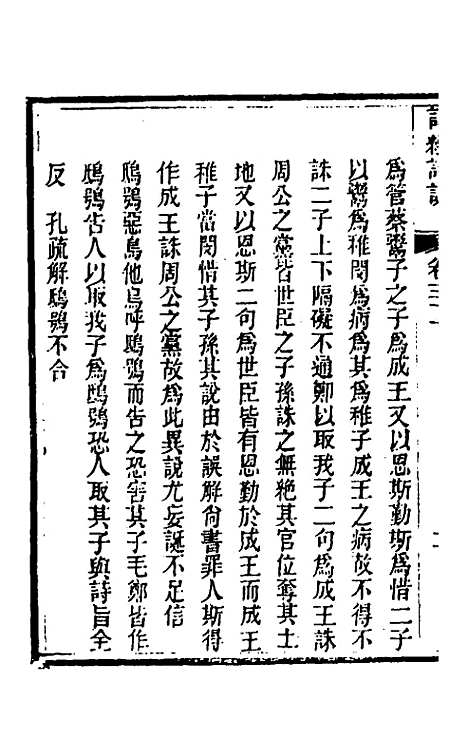 為管蔡鬻子之子為成王又以恩斯勤斯為惜二子
以鬻為稚閔為病為其為稚子成王之病故不得不
誅二子上下隔礙不通鄭以取我子二句為成王誅
周公之黨皆世臣之子孫誅之無絕其官位奪其土
地又以恩斯二句為世臣皆有恩勤於成王而成王
稚子當閔惜其子孫其說由於誤解尚書罪人斯得
作成王誅周公之黨故為此異說尤妄誕不足信
鴟鴞惡鳥他鳥呼鴟鴞而告之恐害其子毛鄭皆作
鴟鴞告人以取我子為鴟鴞恐人取其子與詩旨全
反 孔疏解鴟鴞不合